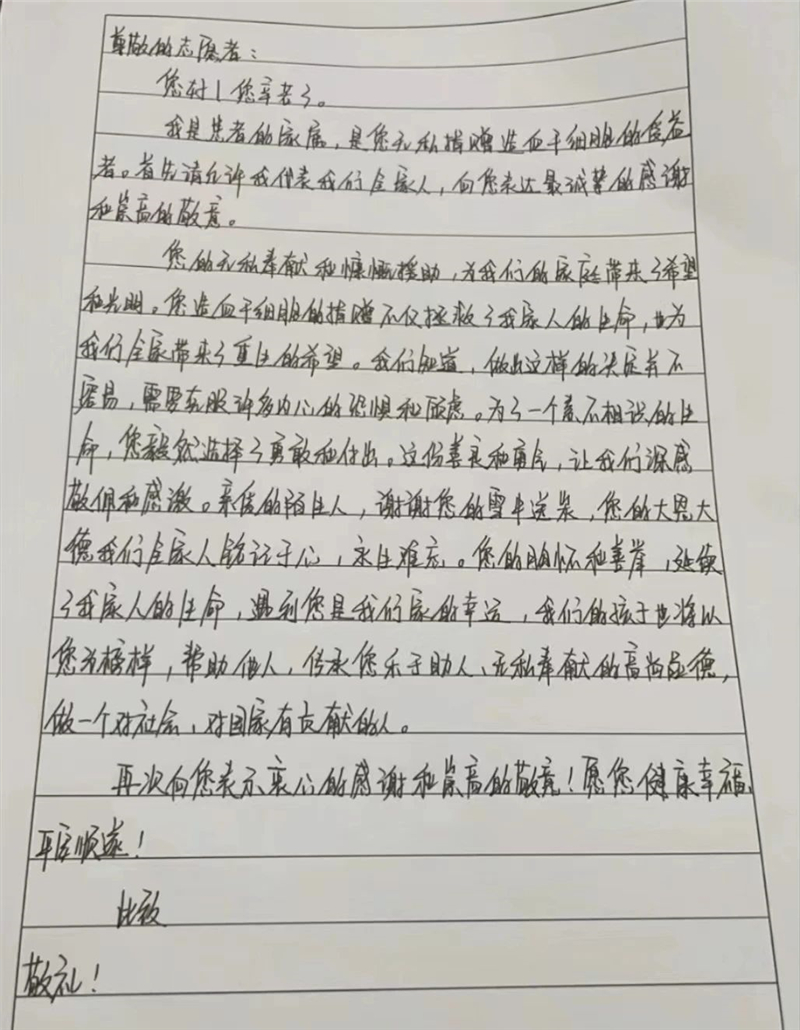 尊敬的志愿者：
您好！您辛苦了。
我是患者的家属，是您无私捐赠造血干细胞的受益
者。首先请允许我代表我们全家人，向您表达最诚挚的感谢
和崇高的敬意。
您的无私奉献和慷慨援助，为我们的家庭带来了希望
和光明。您造血干细胞的捐赠不仅拯救了我家人的生命，也为
我们全家带来了重生的希望。我们知道，做出这样的决定并不
容易，需要克服许多内心的恐惧和顾虑。为了一个素不相识的生
命，您毅然选择了勇敢和付出。这份善良和勇气，让我们深感
敬佩和感激。亲爱的陌生人，谢谢您的雪中送炭，您的大恩大
德我们全家人铭记于心，永生难忘。您的胸怀和善举，延续
了我家人的生命，遇到您是我们家的幸运，我们的孩子也将以
您为榜样，帮助他人，传承您乐于助人、无私奉献的高尚品德，
做一个对社会、对国家有贡献的人。
再次向您表示衷心的感谢和崇高的敬意！愿您健康幸福、
平安顺遂！
此致
敬礼！